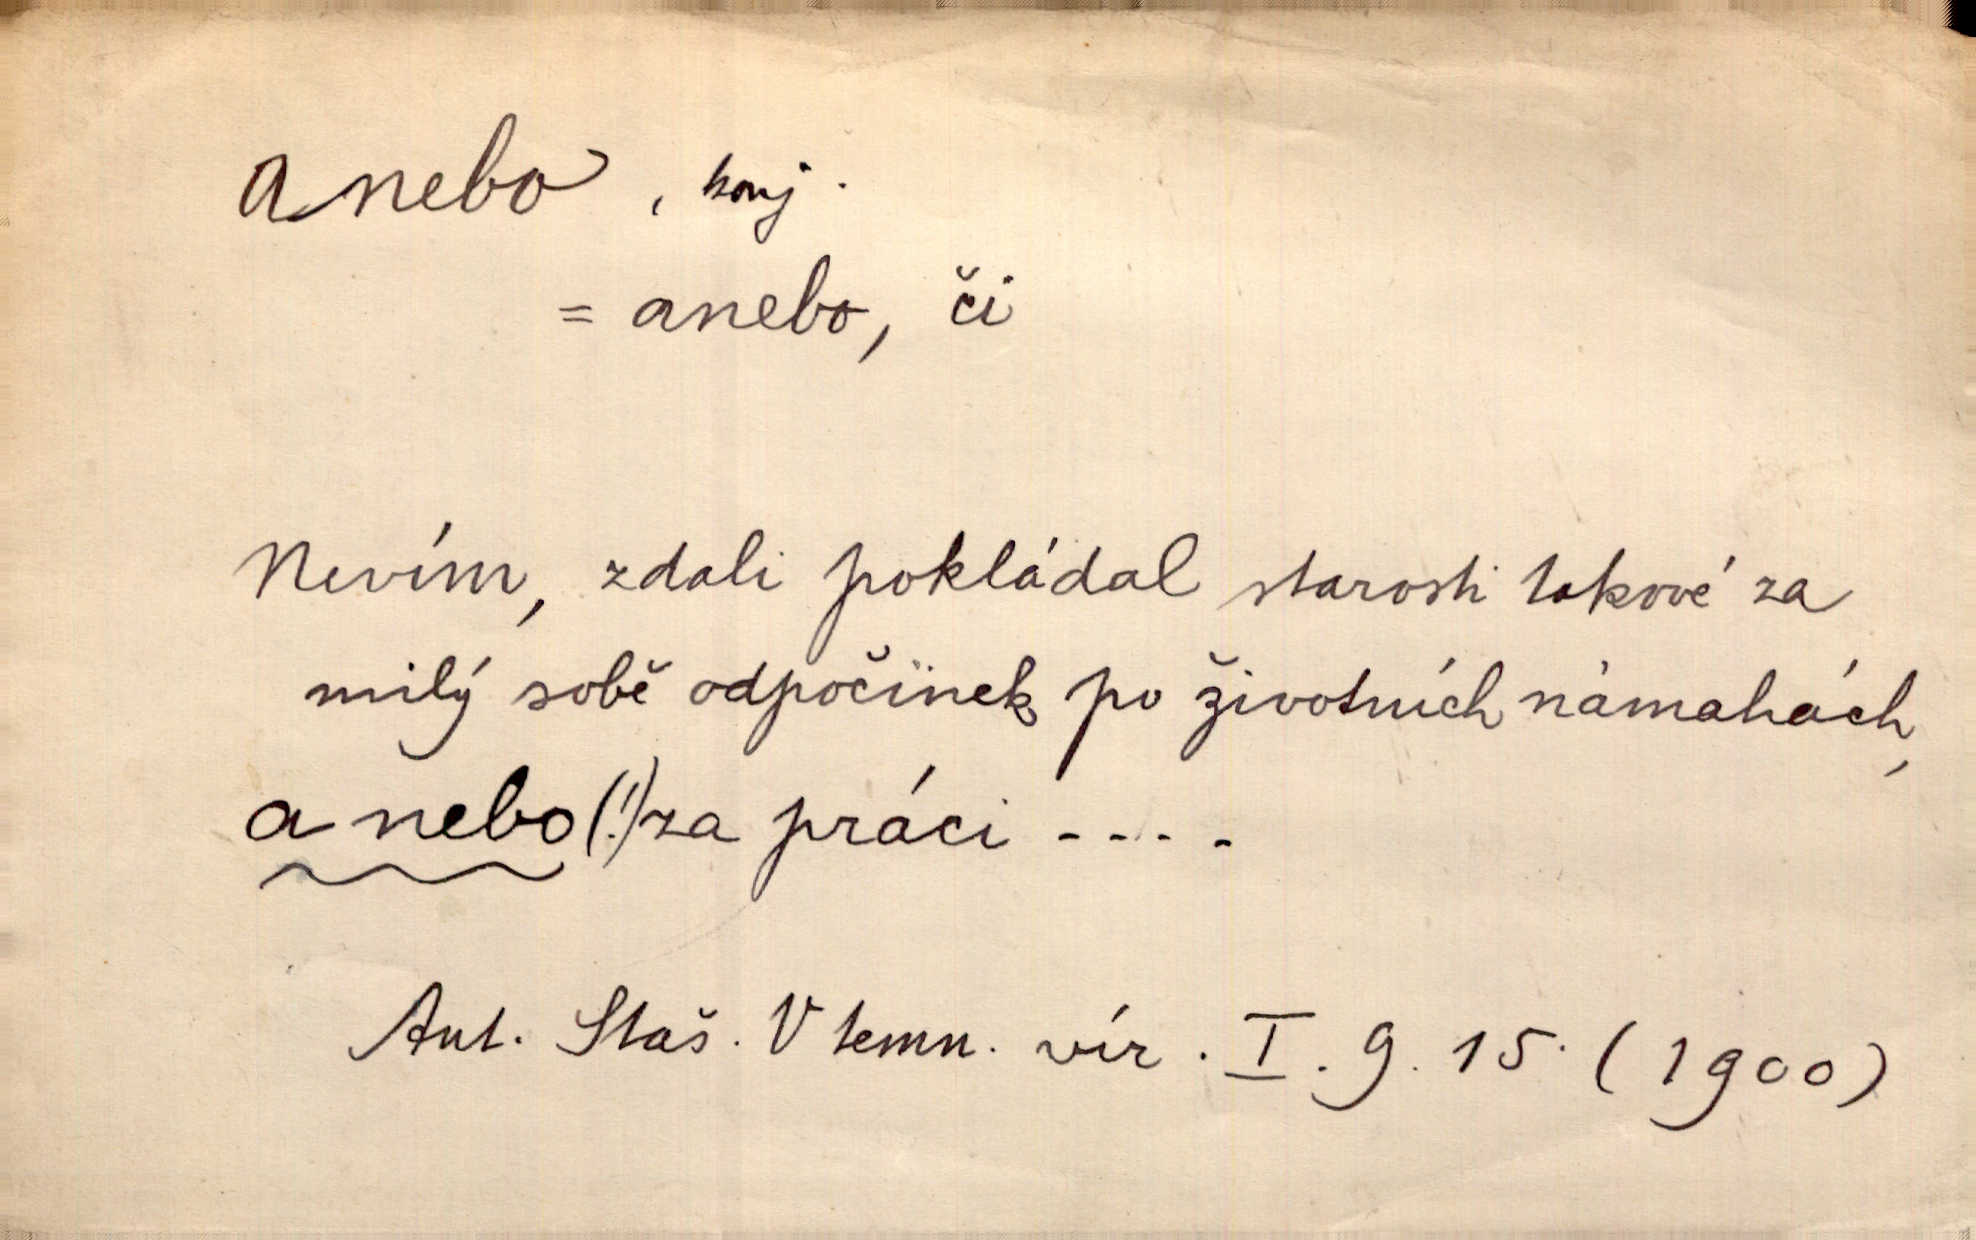 a nebo, konj.
= anebo, či
Nevím, zdali pokládal starosti takové za
milý sobě odpočinek po životních námahách,
a nebo (!) za práci ----
Ant. Staš. V temn. vír. I. 9. 15. (1900)